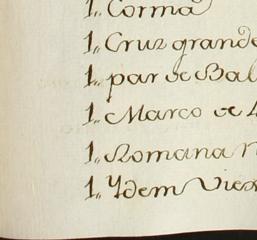 1,, Corma
1,, Cruz grande
1,, par de Bal
1,, Marco de
1,, Romana
1,, Ydem Viex